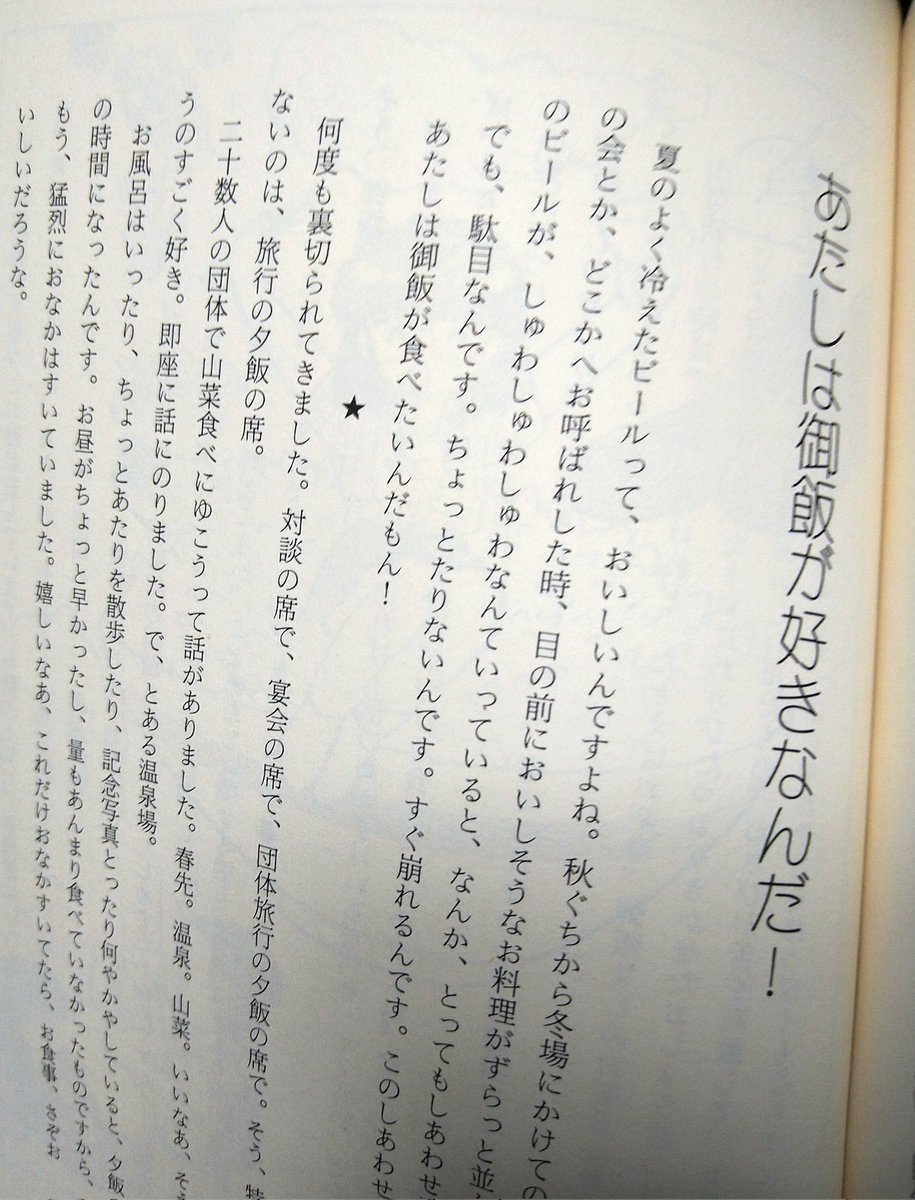 あたしは御飯が好きなんだ！
夏のよく冷えたビールって、おいしいんですよね。秋ぐちから冬場にかけての
の会とか、どこかへお呼ばれした時、目の前においしそうなお料理がずらっと並
のビールが、しゅわしゅわしゅわなんていっていると、なんか、とってもしあわせ
でも、駄目なんです。ちょっとたりないんです。すぐ崩れるんです。このしあわせ
あたしは御飯が食べたいんだもん！
★
何度も裏切られてきました。対談の席で、宴会の席で、団体旅行の夕飯の席で。そう、特
ないのは、旅行の夕飯の席。
二十数人の団体で山菜食べにゆこうって話がありました。春先。温泉。山菜。いいなあ、そ
うのすごく好き。即座に話にのりました。で、とある温泉場。
お風呂はいったり、ちょっとあたりを散歩したり、記念写真とったり何やかやしていると、夕飯
の時間になったんです。お昼がちょっと早かったし、量もあんまり食べていなかったものですから、
もう、猛烈におなかはすいていました。嬉しいなあ、これだけおなかすいてたら、お食事、さぞお
いしいだろうな。